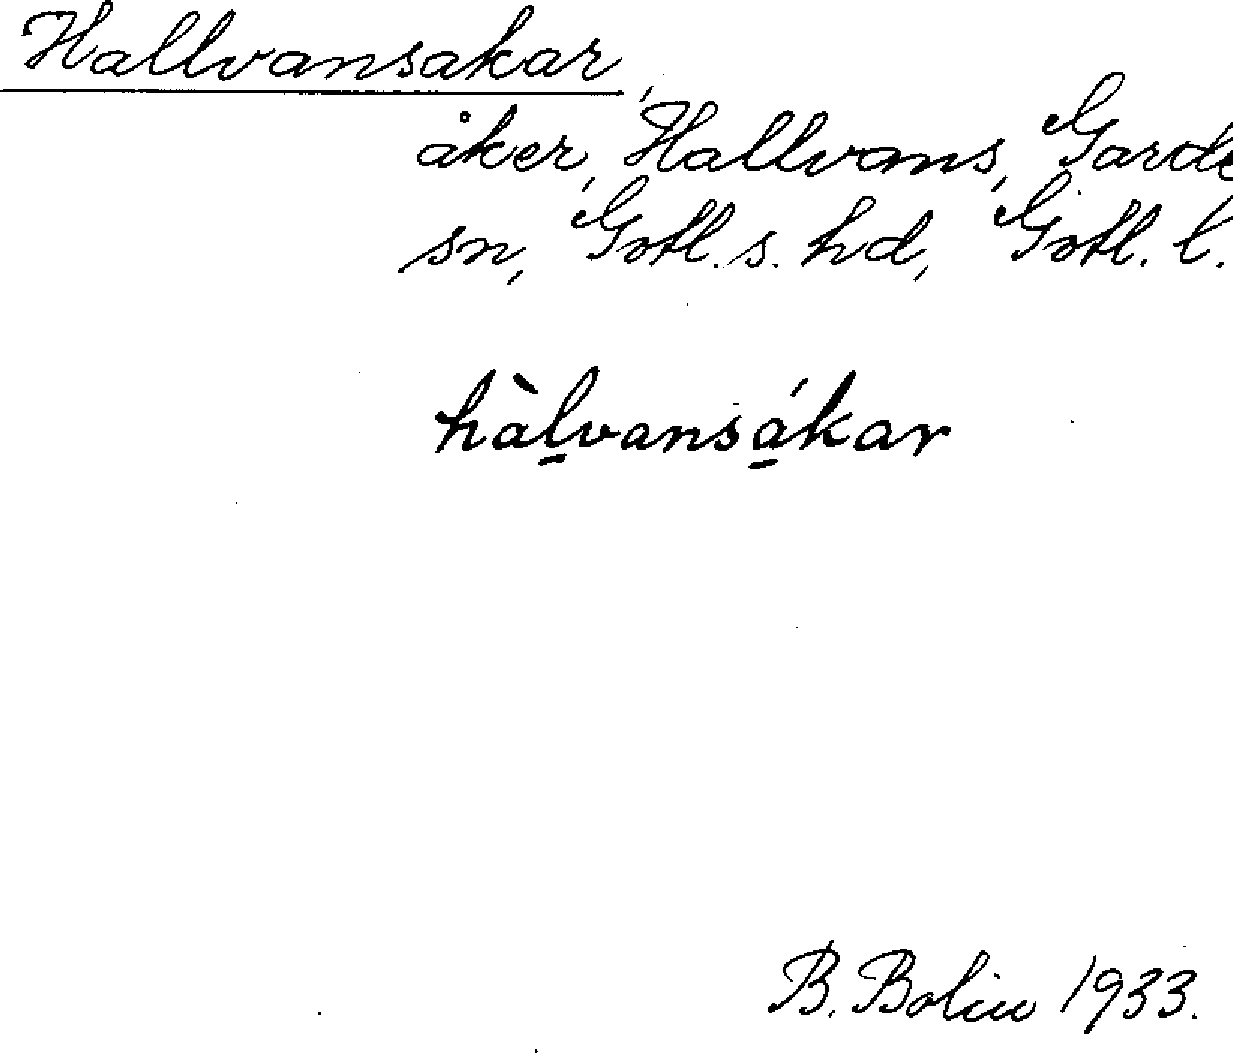 Hallvansakar,
åker, Hallvans, Garde
sn, Gotl. s. hd, Gotl. l.
hàl̲vansá̲kar
B. Bolin 1933.